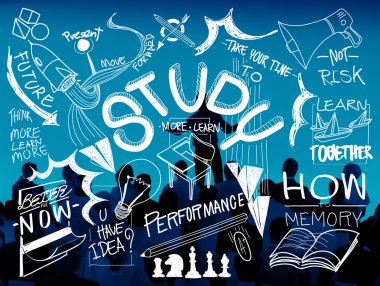 Present
MOVE
FORWARD
FUTURE
TAKE YOUR TIME
TO
-NOT-
RISK
STUDY
MORE LEARN
THINK
MORE
LEARN
MORE
LEARN
TOGETHER
BETTER
-NOW-
U
HAVE
IDEA?
PERFORMANCE
HOW
TO
MEMORY